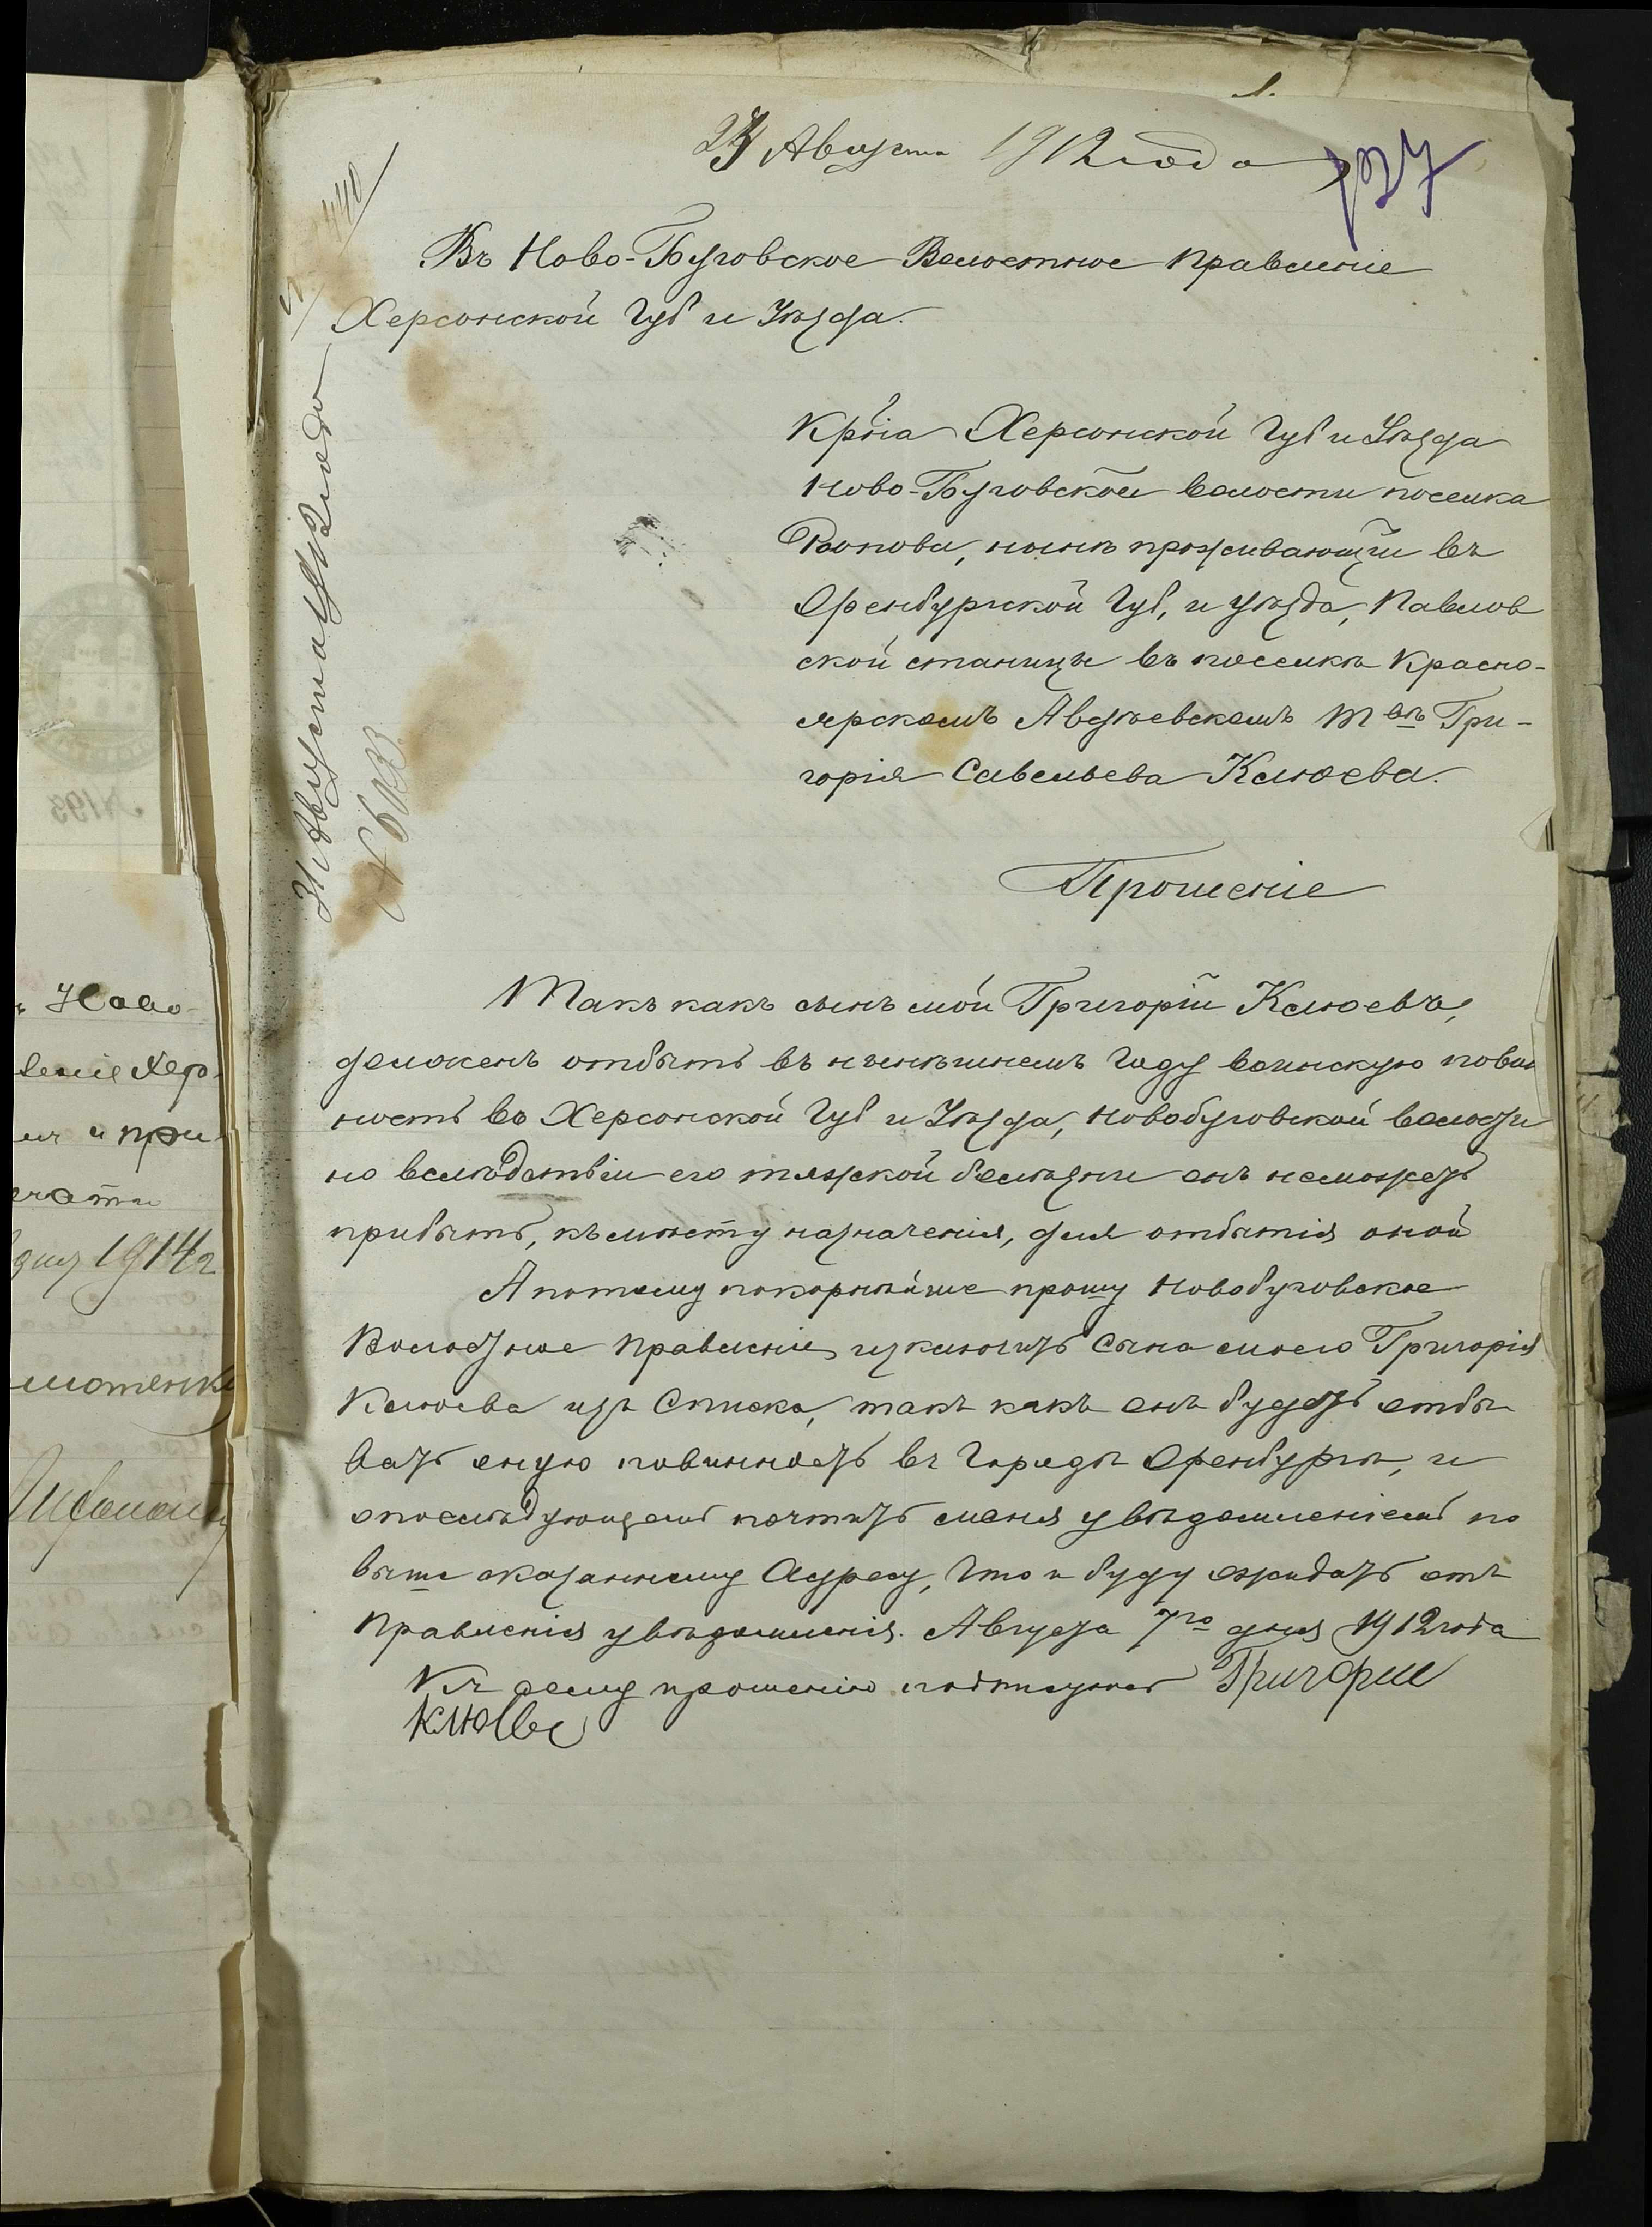 1.
24 Августа 1912 года
127
Въ Ново-Буговское Волостное Правленіе
Херсонской Губ и Уѣзда.
Кр̃на Херсонской Губ и Уѣзда
Ново-Буговской волости поселка
нынѣ проживающій въ
Оренбургской Губ, и уѣзда, Павлов
ской станицы въ поселкѣ Красно-
ярскомъ Авдѣевскомъ Твѣ Гри-
горія Савельева Клюева.
Прошеніе
Такъ какъ сынъ мой Григорій Клюевъ,
долженъ отбыть въ нынѣшнемъ Году воинскую повин
ность во Херсонской Губ и Уѣзда, Новобуговской волости
но вслѣдствіи его тяжской болѣзни онъ неможетъ
прибыть, къ мѣсту назначенія, для отбытія оной
А потому покорнѣйше прошу Новобуговское
Волостное Правленіе, изключить Сына моего Григорія
Клюева изъ Списка, такъ какъ онъ будетъ отбы
вать оную повинность въ Городѣ Оренбургѣ, и
опослѣдующемъ почтить меня увѣдомленіемъ по
выше оказанному Адресу, Что и буду ожидать отъ
Правленія увѣдомленія. Августа 7го дня 1912 года
Къ сему прошенію подписуюсь Григорие
Клюев
№ 193
Ново-
леніе Хер-
и при
1914 г